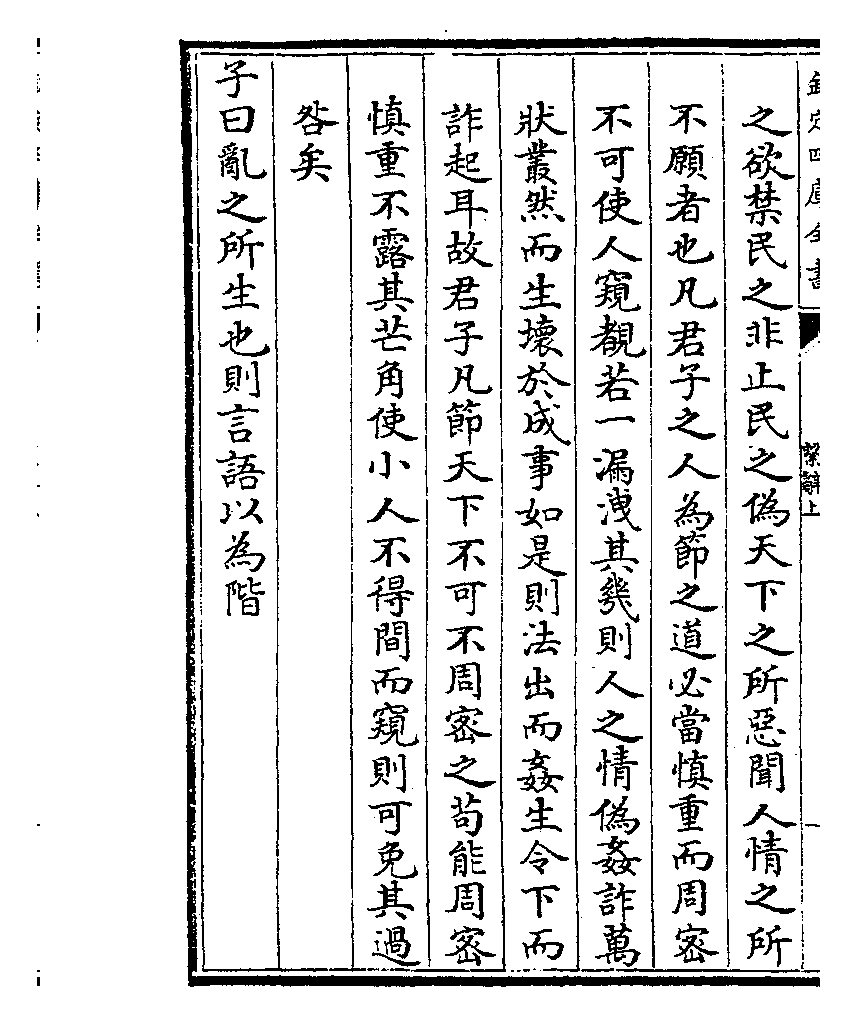 欽定四庫全書
繫辭上
之欲禁民之非止民之偽天下之所惡聞人情之所
不願者也凡君子之人為節之道必當慎重而周密
不可使人窺覩若一漏洩其幾則人之情偽姦詐萬
狀叢然而生壞於成事如是則法出而姦生令下而
詐起耳故君子凡節天下不可不周密之茍能周密
慎重不露其芒角使小人不得間而窺則可免其過
咎矣
子曰亂之所生也則言語以為階